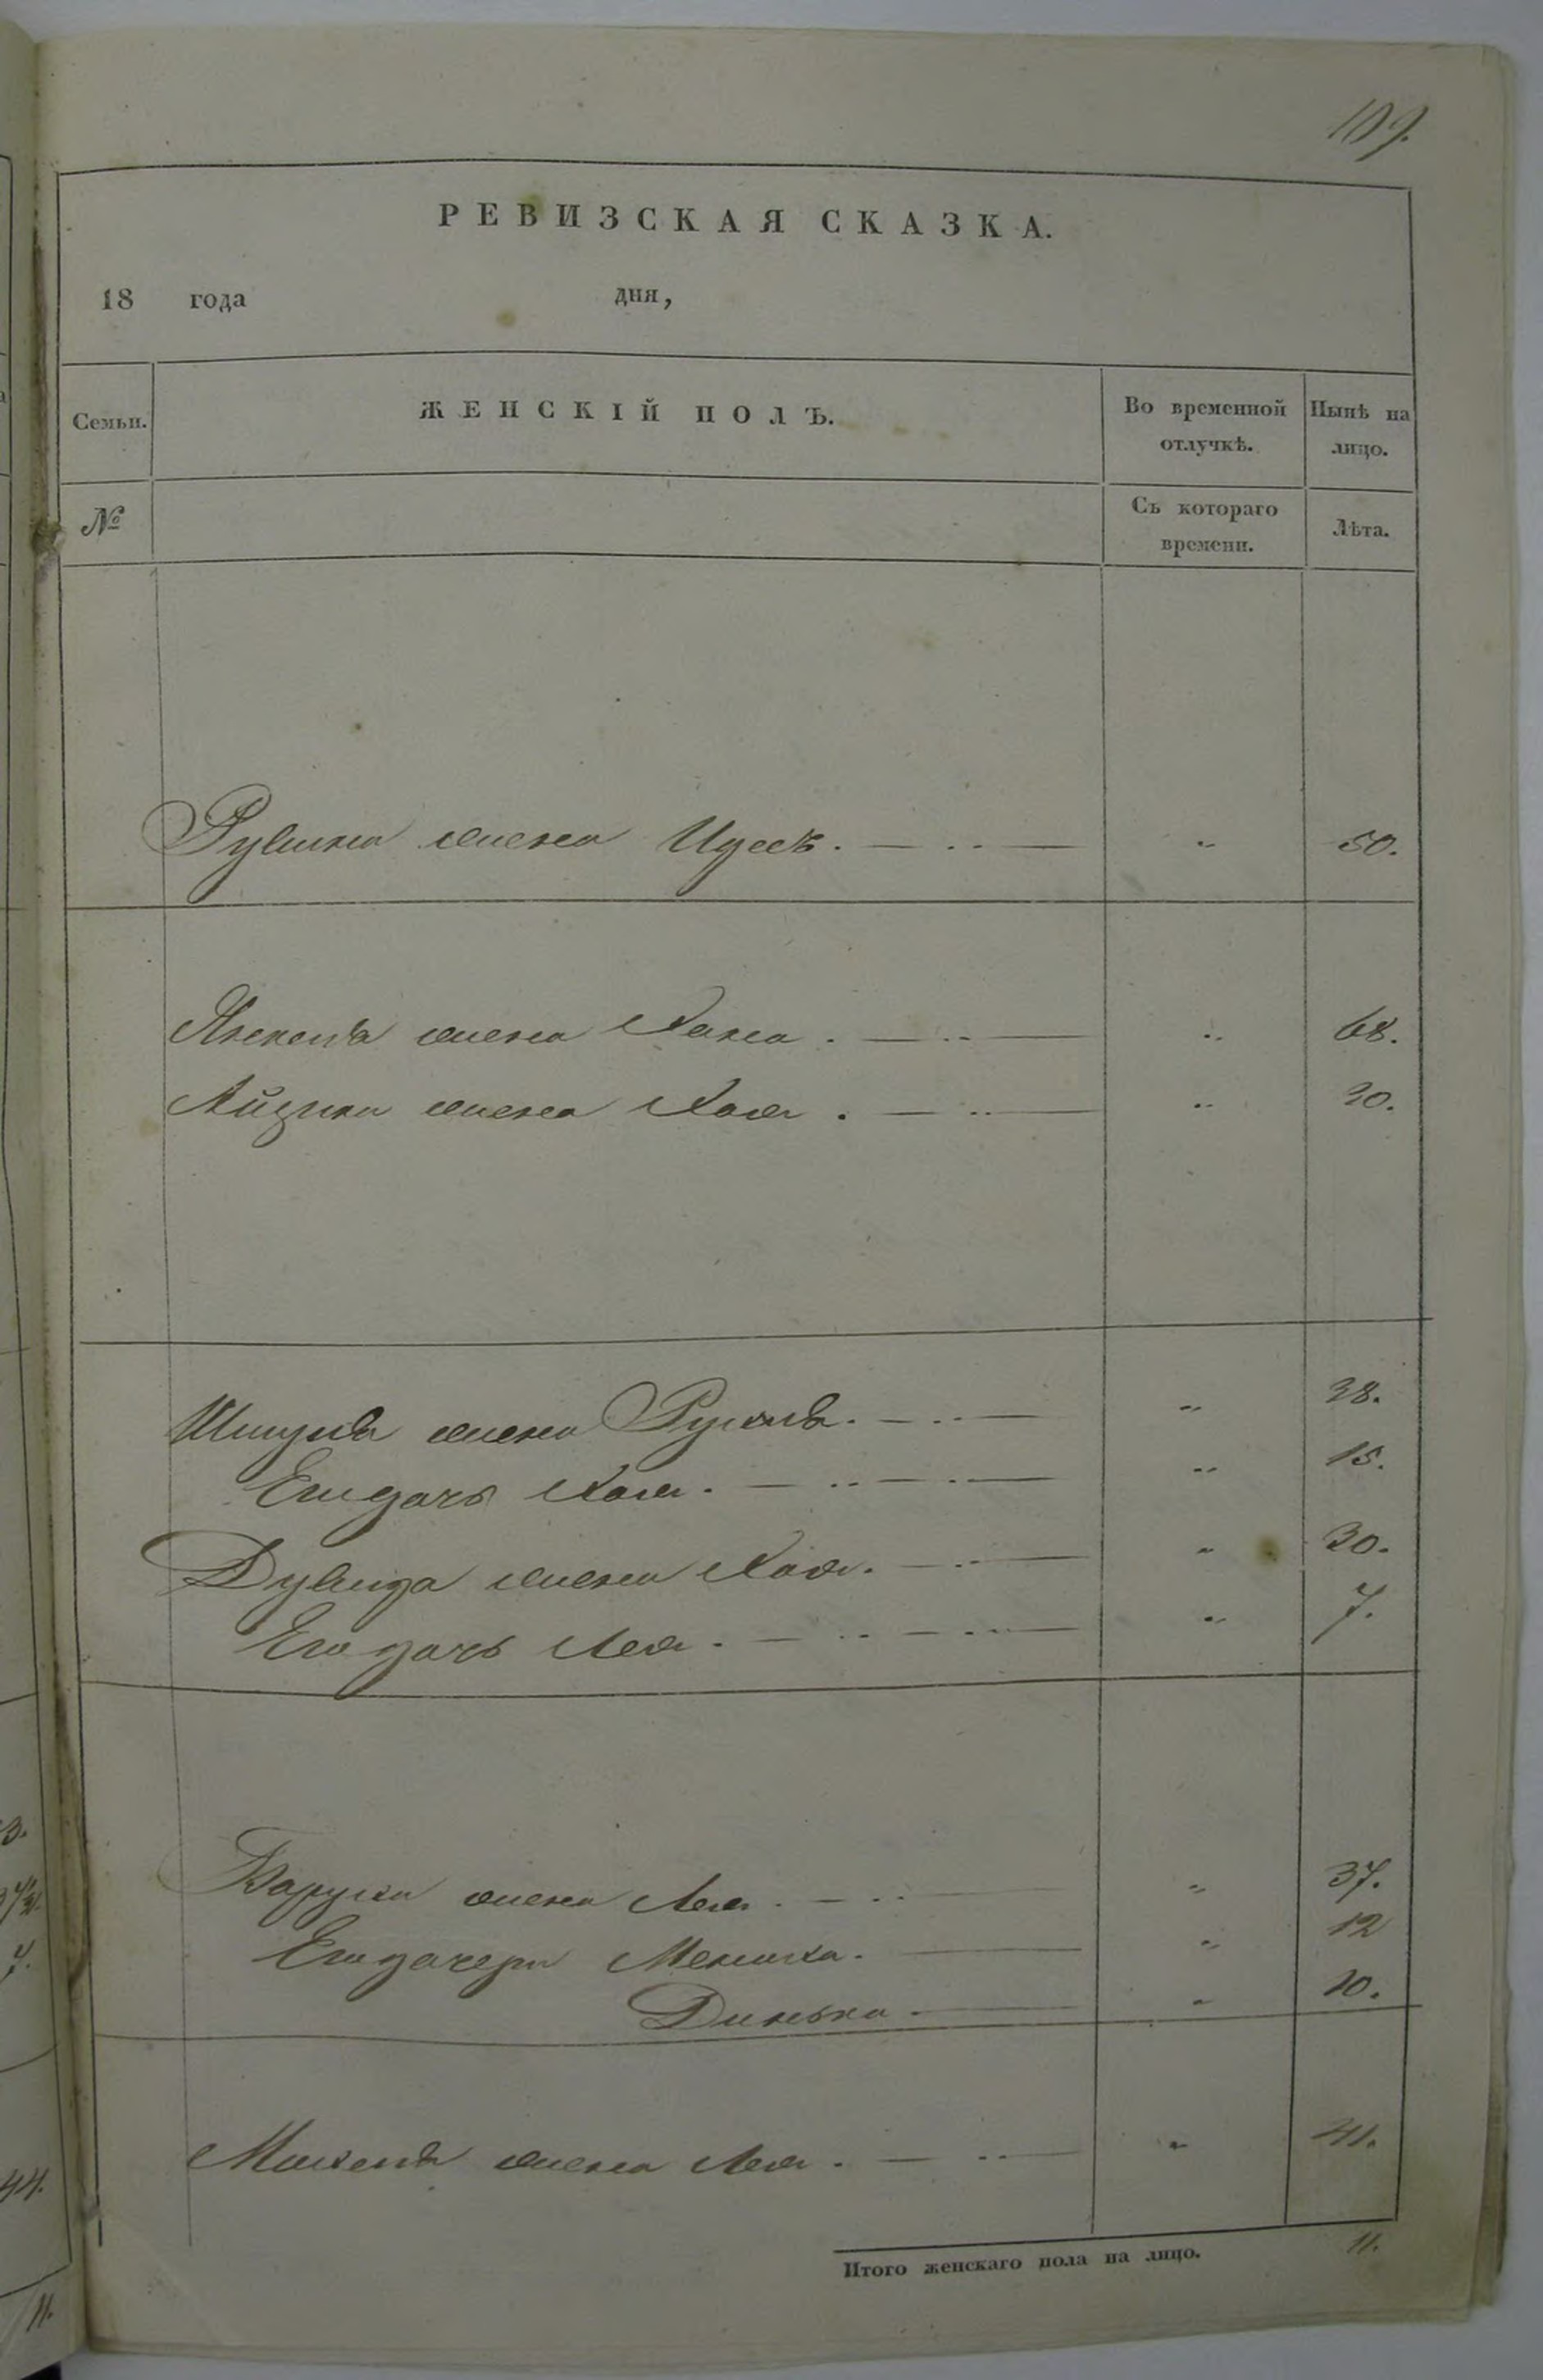 109.
РЕВИЗСКАЯ СКАЗКА.
18 года дня,
Семьи. ЖЕНСКІЙ ПОЛЪ. Во временной отлучкѣ. Нынѣ на лицо.
№ Съ котораго времени. Лѣта.
Рувина жена Идесъ. — .. — „ 50.
Янкеля жена Хана. — .. — „ 68.
Айзика жена Хая. — .. — „ 30.
Шмуля жена Рухля. — .. — „ 38.
Его дочь Хая. — .. — .. — „ 15.
Дувида жена Хая. — .. — „ 30.
Его дочь Лея. — .. — .. — „ 7.
Боруха жена Лея. — .. — „ 37.
Его дочери Менуха. — „ 12
Динька — „ 10.
жена Лея. — .. — „ 41.
Итого женскаго пола на лицо. 11.
3.
7.
44.
11.